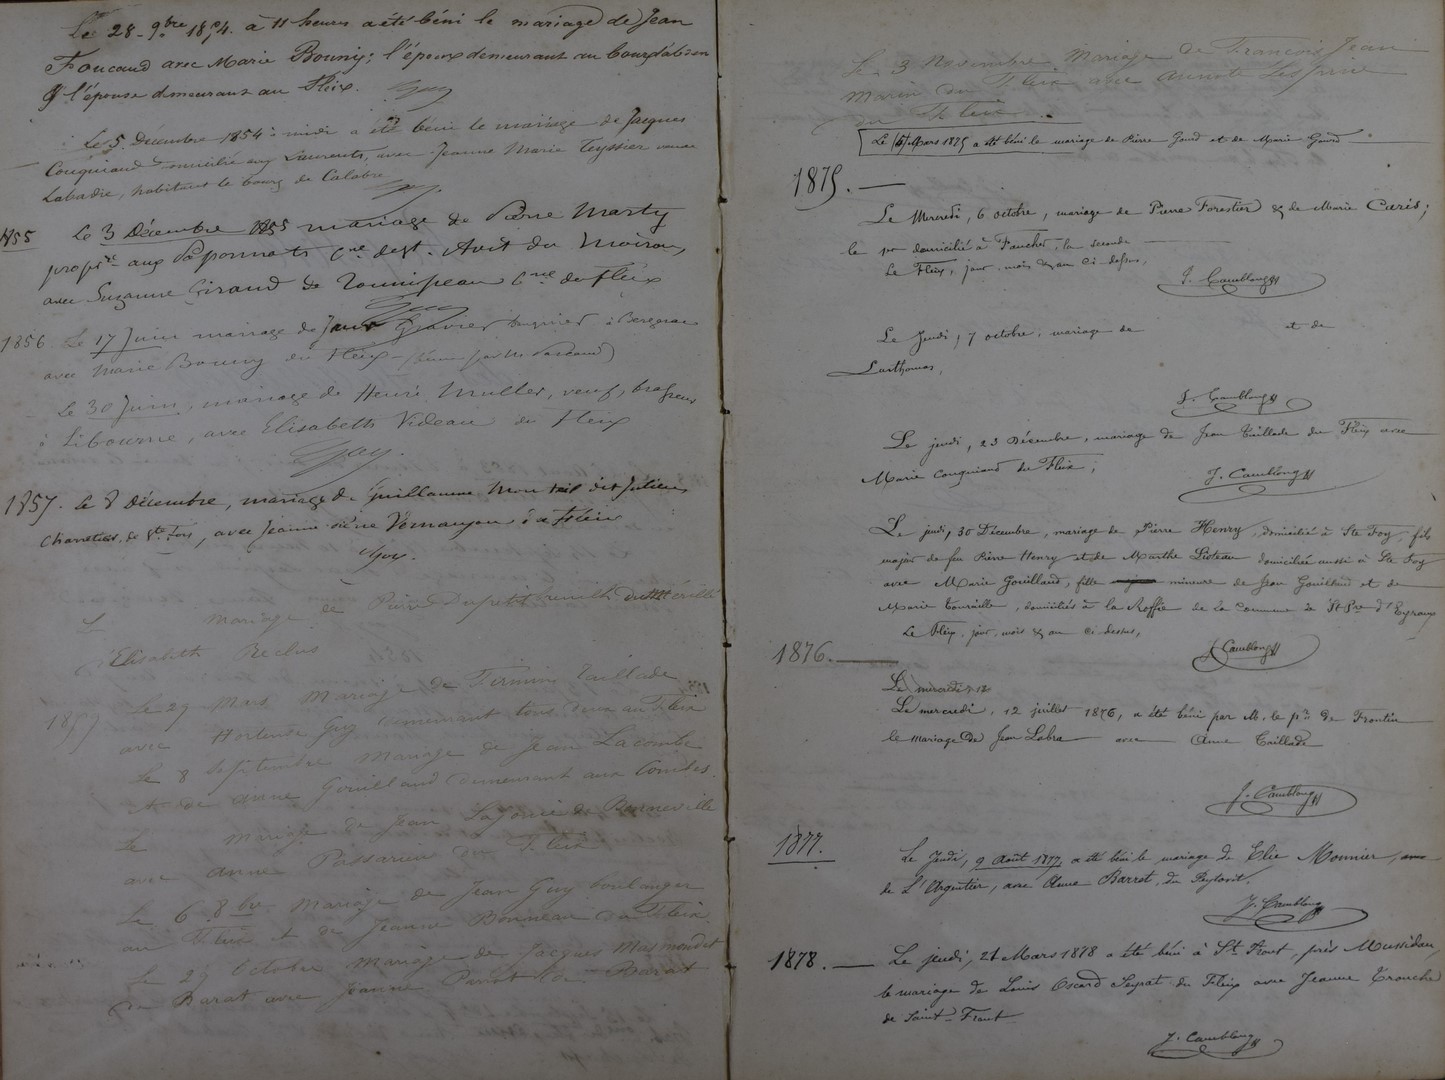 Le 28 9bre 1854. à 11 heures a été béni le mariage de Jean
Foucaud avec Marie Bouny; l'époux demeurant au bourg
& l'épouse demeurant au Fleix. Guy
Le 5 Decembre 1854 à midi a été béni le mariage de Jacques
Couquiaud domicilié aux Laurents, avec Jeanne Marie Teyssier veuve
Labadie, habitant le bourg de Calabre
Guy.
1855 Le 3 Décembre 1855 mariage de Pierre Marty
propre aux Paponnats Cne de St. Avit du Moiron,
avec Suzanne Giraud de Cne du Fleix
Guy
1856. Le 17 Juin mariage de Gravier à Bergerac
avec Marie Bouny du Fleix
Le 30 Juin, mariage de Henri Muller, veuf, brasseur
à Libourne, avec Elisabeth Videau du Fleix
Guy.
1857. Le 8 décembre, mariage de Guillaume Monteil dit Julien,
Charretier, de Ste Foy, avec Jeanne du Fleix
Guy.
L mariage de Pierre Dupetit
Elisabeth Reclus
1857 Le 29 Mars Mariage de Firmin Taillade
avec Hortense Guy demeurant tous deux au Fleix
Le 8 Septembre Mariage de Jean Lacombe
et de Anne Gouilland demeurant aux Combes.
Le mariage de Jean de Bonneville
avec Anne Passarieu du Fleix
Le 6 8bre Mariage de Jean Guy boulanger
au Fleix et de Jeanne Bonneau du Fleix
Le 29 Octobre Mariage de Jacques
de Barat avec Jeanne de Barat
Le 3 Novembre Mariage de François Jean
Marin du Fleix avec Annote Lespine
du Fleix
Le 16 Mars 1875 a été béni le mariage de Pierre Gourd et de Marie Gourd
1875. —
Le Mercredi, 6 octobre, mariage de Pierre Forestier & de Marie Curés;
le pr domicilié à Faucher, la seconde —
Le Fleix, jour, mois & an ci-dessus,
J. Camblong
Le Jeudi, 7 octobre, mariage de et de
Larthomas,
J. Camblong
Le jeudi, 23 Décembre, mariage de Jean Taillade du Fleix avec
Marie Couquiaud du Fleix;
J. Camblong
Le jeudi, 30 Décembre, mariage de Pierre Henry, domicilié à Ste Foy, fils
majeur de feu Pierre Henry et de Marthe domiciliée aussi à Ste Foy
avec Marie Gouilland, fille mineure de Jean Gouilland et de
Marie Touraille, domiciliés à la Roffie de la commune de St Pre d'Eyraux
Le Fleix, jour, mois & an ci-dessus,
J. Camblong
1876. —
Le mercredi, 12
Le mercredi, 12 juillet 1876, a été béni par M. le pr. de Frontin
le mariage de Jean Labra — avec — Anne Taillade
J. Camblong
1877.
Le Jeudi, 9 Août 1877, a été béni le mariage de Elie Mounier,
de L'Argentier, avec Anne Barrot, du Reylovit.
J. Camblong
1878. — Le jeudi, 21 Mars 1878 a été béni à St Front, près Mussidan,
le mariage de Louis Oscard Seyrat du Fleix avec Jeanne Tronche
de Saint-Front
J. Camblong